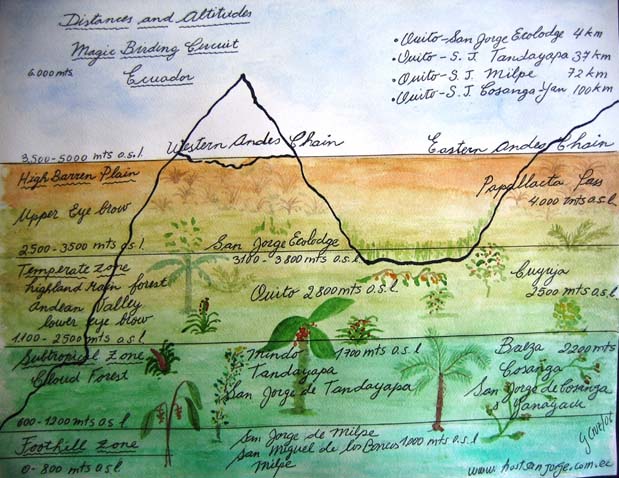 Distances and Altitudes
Magic Birding Circuit
Ecuador
6.000 mts.
• Quito-San Jorge Ecolodge 4 km
• Quito-S.J. Tandayapa 37 km
• Quito-S.J. Milpe 72 km
• Quito-S.J. Cosanga-Yan 100 km
Western Andes Chain
Eastern Andes Chain
3,500-5000 mts a.s.l
High Barren Plain
Papallacta Pass
4.000 mts a.s.l
Upper Eye brow
2500-3500 mts a.s.l
San Jorge Ecolodge
3100-3800 mts a.s.l
Temperate Zone
highland rain forest
Andean Valley
lower eye brow
Quito 2800 mts a.s.l
Cuyuja
2500 mts a.s.l
1100-2500 mts a.s.l
Subtropical Zone
Cloud Forest
Mindo 1700 mts a.s.l
Tandayapa
San Jorge de Tandayapa
Baeza 2200 mts
Cosanga
San Jorge de Cosanga
Yanayacu
600-1200 mts a.s.l
Foothill Zone
0-800 mts a.s.l
San Jorge de Milpe
San Miguel de los Bancos 1000 mts a.s.l
Milpe
www.hostsanjorge.com.ec